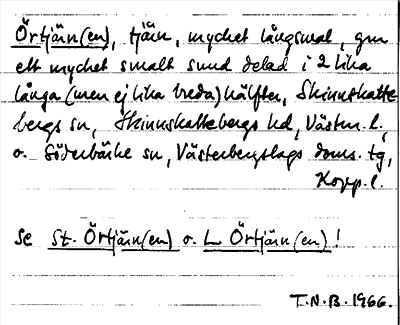 Örtjärn(en), tjärn, mycket långsmal, gm
ett mycket smalt sund delad i 2 lika
långa (men ej lika breda) hälfter, Skinnskatte
bergs sn, Skinnskattebergs hd, Västm. l.
o. Söderbärke sn, Västerbergslags doms. tg,
Kopp. l.
Se St. Örtjärn(en) o. L Örtjärn(en)!
T.N.B. 1966.